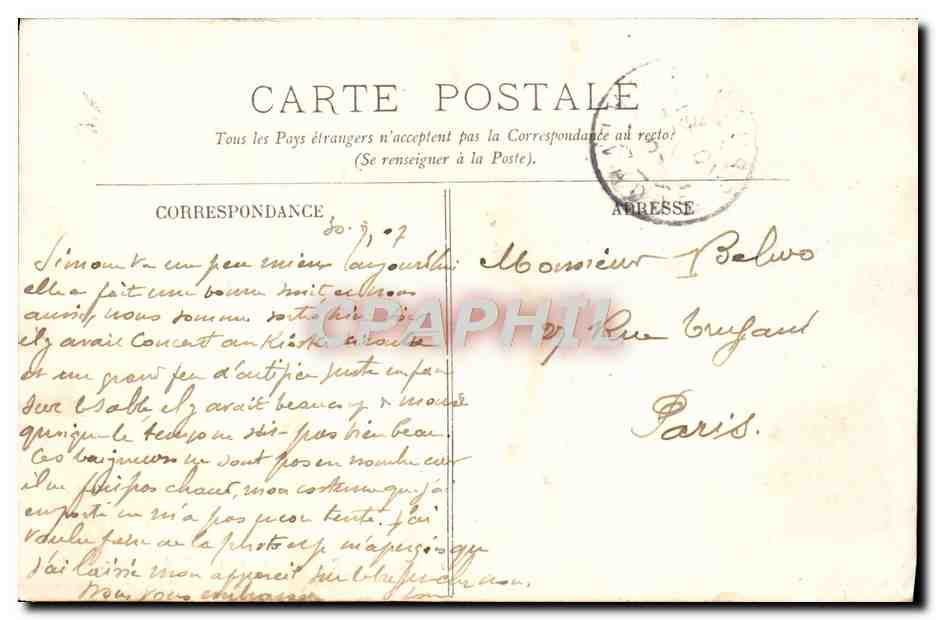 CARTE POSTALE
Tous les Pays étrangers n'acceptent pas la Correspondance au recto?
(Se renseigner à la Poste).
CORRESPONDANCE
ADRESSE
30. 7
Simone va un peu mieux aujourd'hui
elle a fait une bonne nuit et nous
aussi, nous sommes sortis hier soir
il y avait Concert au Kiosk
et un grand feu d'artifice juste en face
sur le sable, il y avait beaucoup de monde
quoique le temps ne soit pas bien beau.
Les baigneurs ne sont pas en nombre car
il ne fait pas chaud, mon costume que j'ai
emporté ne m'a pas encore tenté. J'ai
voulu faire de la photo et je m'aperçois que
j'ai laissé mon appareil sur
Nous vous embrassons
Monsieur
27 Rue
Paris.
CPAPHIL